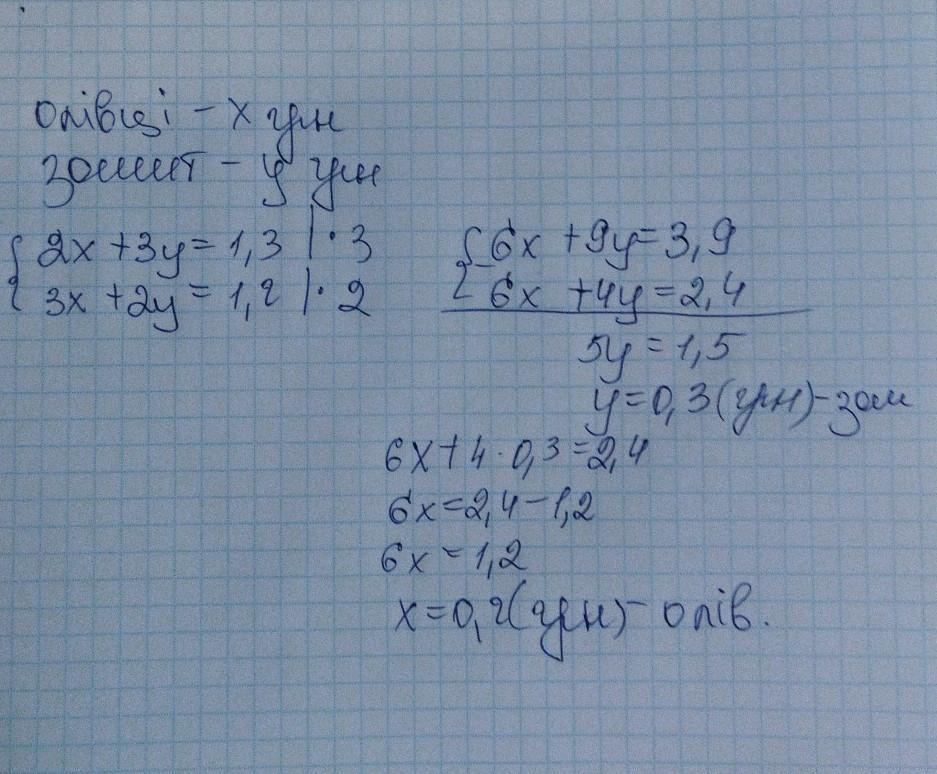 олівці - х грн
зошит - у грн
{ 2x + 3y = 1,3 | · 3
3x + 2y = 1,2 | · 2
{ 6x + 9y = 3,9
- 6x + 4y = 2,4
5y = 1,5
y = 0,3 (грн) - зош
6x + 4 · 0,3 = 2,4
6x = 2,4 - 1,2
6x = 1,2
x = 0,2 (грн) - олів.